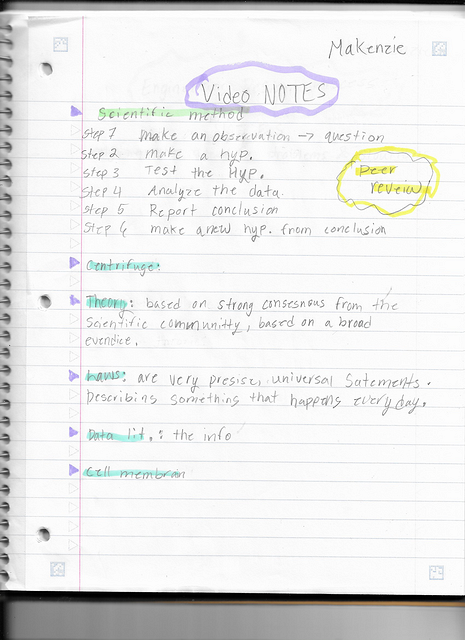 Makenzie
Video NOTES
Scientific method
Step 1 make an observation → question
Step 2 make a hyp.
Step 3 Test the Hyp.
Step 4 Analyze the data.
Step 5 Report conclusion
Step 6 make a new hyp. from conclusion
Peer
reveiw
Centrifuge:
Theory: based on strong consesnous from the
Scientific communitty, based on a broad
evendice.
Laws: are very presise, universal Satements.
Describing something that happens everyday.
Data lit.: the info
Cell membrain